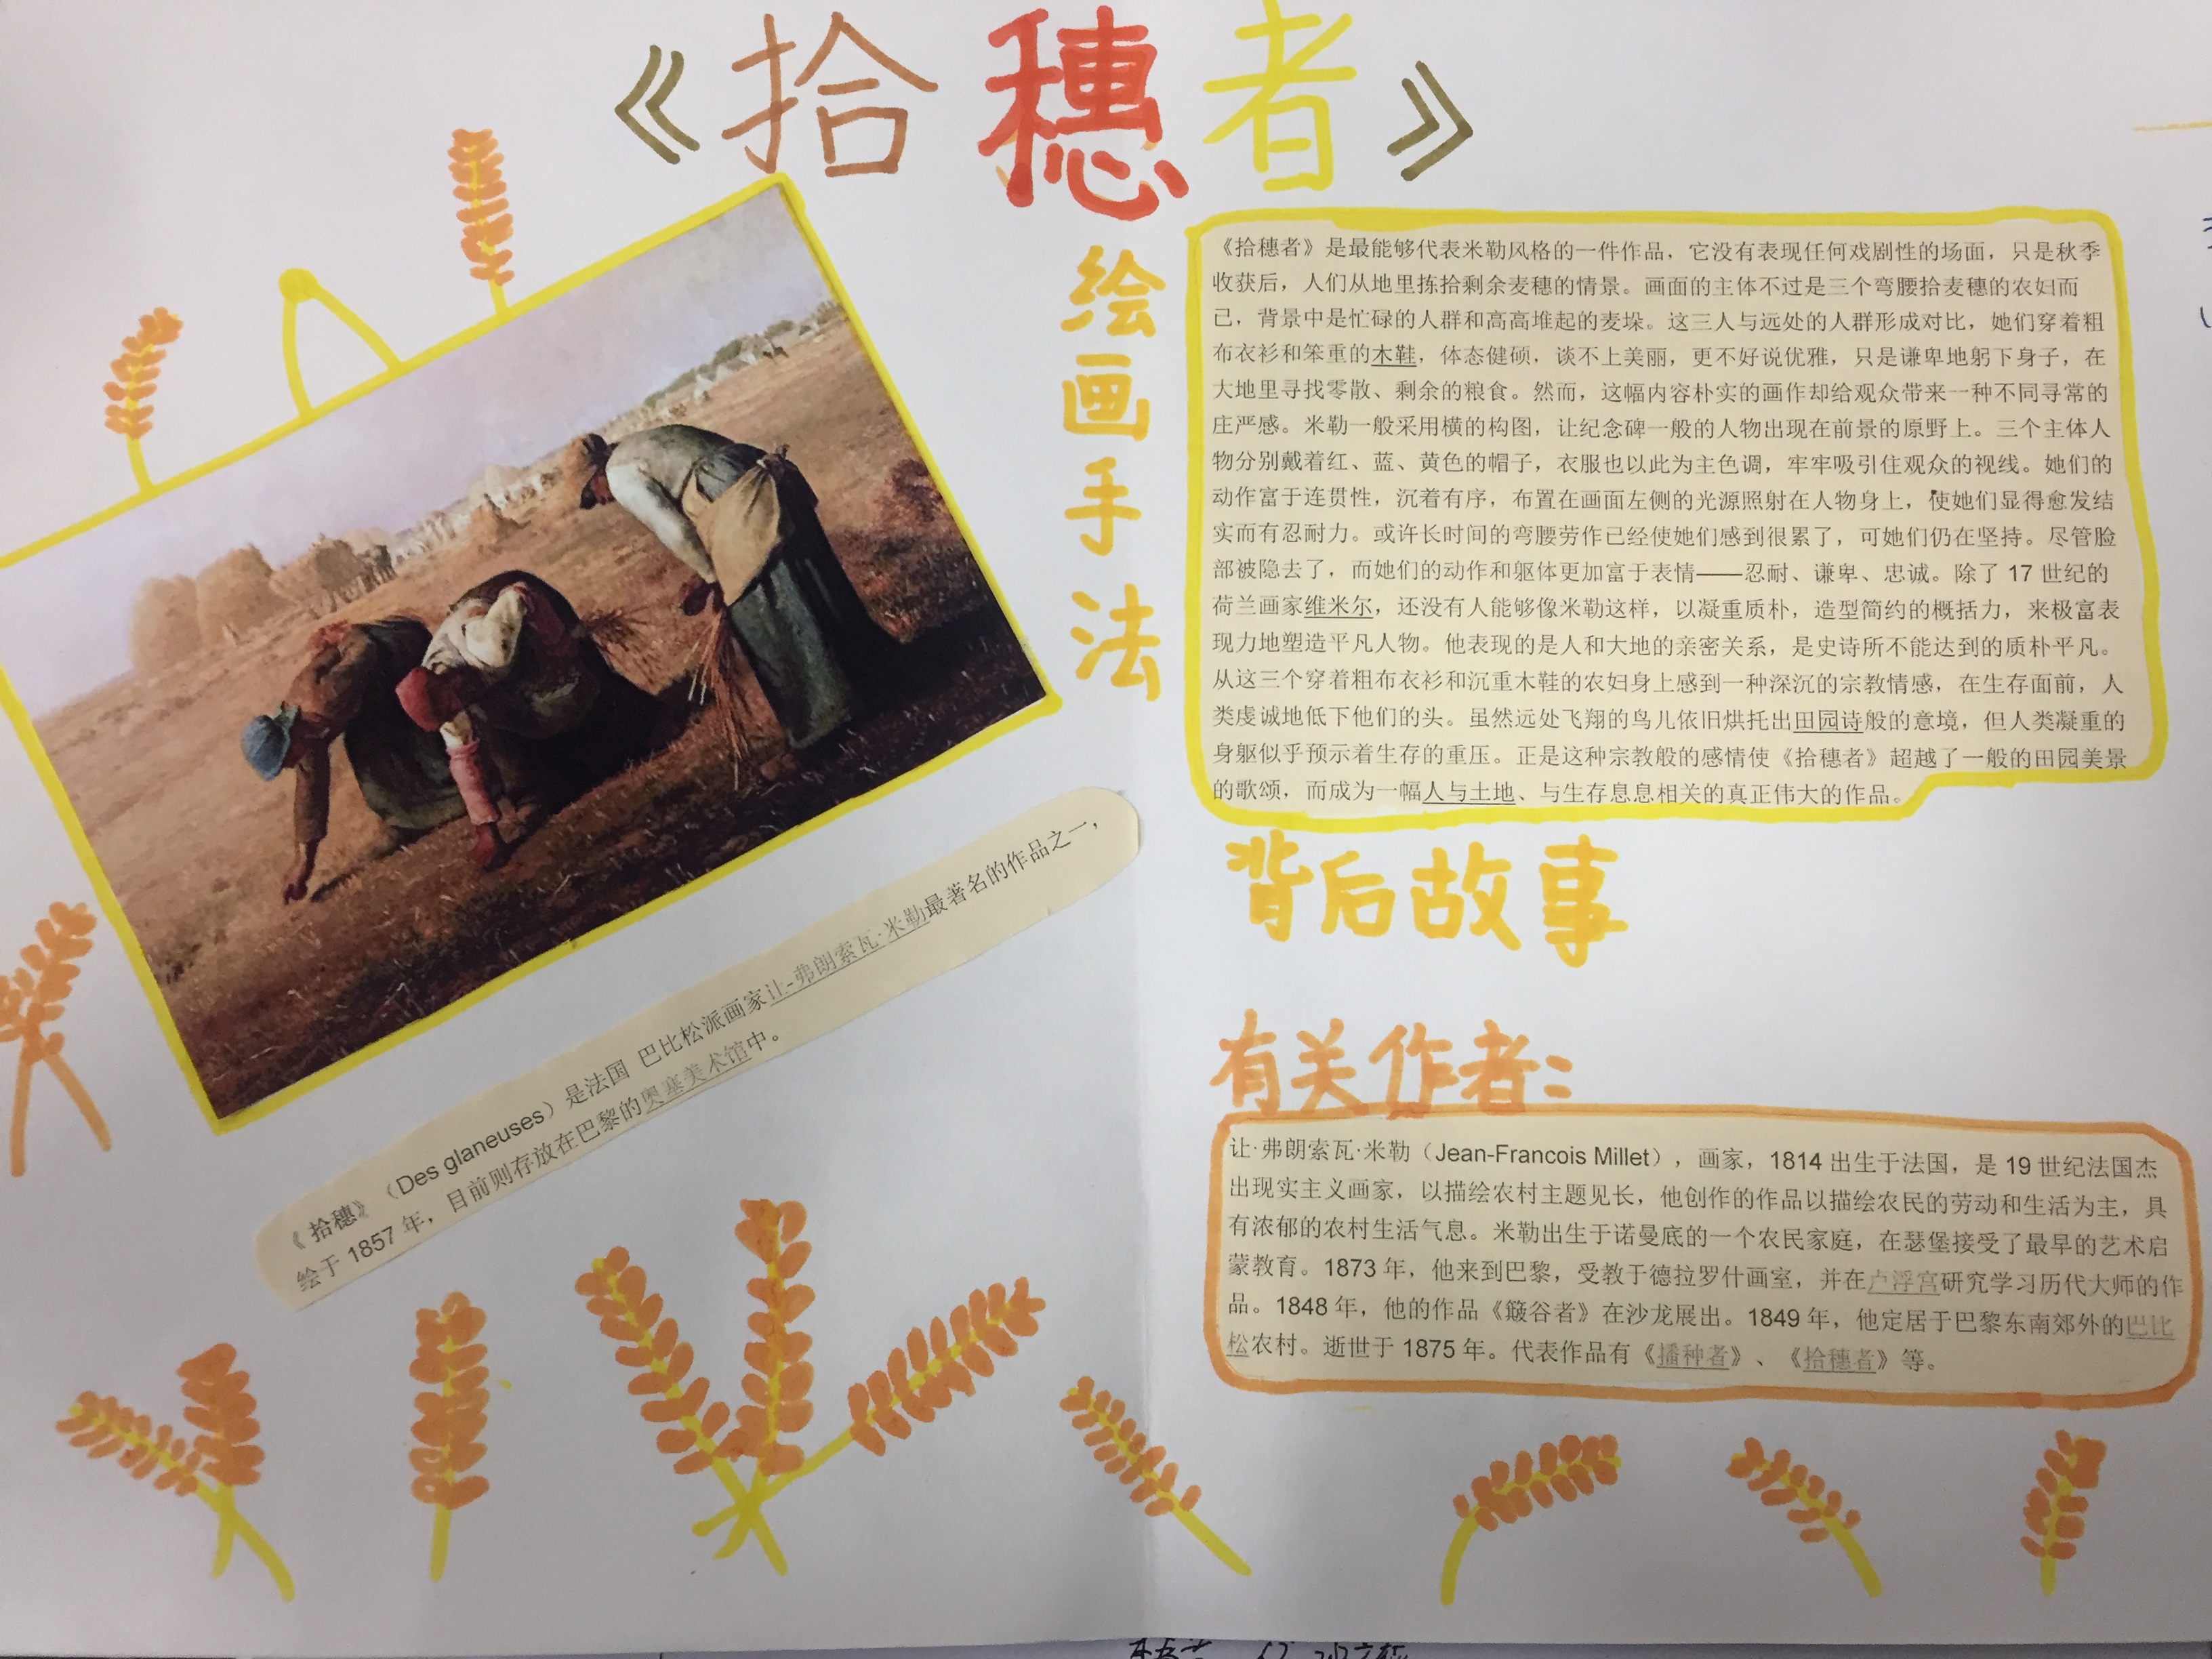 《拾穗者》
绘画手法
《拾穗者》是最能够代表米勒风格的一件作品，它没有表现任何戏剧性的场面，只是秋季
收获后，人们从地里拣拾剩余麦穗的情景。画面的主体不过是三个弯腰拾麦穗的农妇而
已，背景中是忙碌的人群和高高堆起的麦垛。这三人与远处的人群形成对比，她们穿着粗
布衣衫和笨重的木鞋，体态健硕，谈不上美丽，更不好说优雅，只是谦卑地躬下身子，在
大地里寻找零散、剩余的粮食。然而，这幅内容朴实的画作却给观众带来一种不同寻常的
庄严感。米勒一般采用横的构图，让纪念碑一般的人物出现在前景的原野上。三个主体人
物分别戴着红、蓝、黄色的帽子，衣服也以此为主色调，牢牢吸引住观众的视线。她们的
动作富于连贯性，沉着有序，布置在画面左侧的光源照射在人物身上，使她们显得愈发结
实而有忍耐力。或许长时间的弯腰劳作已经使她们感到很累了，可她们仍在坚持。尽管脸
部被隐去了，而她们的动作和躯体更加富于表情——忍耐、谦卑、忠诚。除了 17 世纪的
荷兰画家维米尔，还没有人能够像米勒这样，以凝重质朴，造型简约的概括力，来极富表
现力地塑造平凡人物。他表现的是人和大地的亲密关系，是史诗所不能达到的质朴平凡。
从这三个穿着粗布衣衫和沉重木鞋的农妇身上感到一种深沉的宗教情感，在生存面前，人
类虔诚地低下他们的头。虽然远处飞翔的鸟儿依旧烘托出田园诗般的意境，但人类凝重的
身躯似乎预示着生存的重压。正是这种宗教般的感情使《拾穗者》超越了一般的田园美景
的歌颂，而成为一幅人与土地、与生存息息相关的真正伟大的作品。
《拾穗》（Des glaneuses）是法国 巴比松派画家让-弗朗索瓦·米勒最著名的作品之一，
绘于 1857 年，目前则存放在巴黎的奥塞美术馆中。
背后故事
有关作者：
让·弗朗索瓦·米勒（Jean-Francois Millet），画家，1814 出生于法国，是 19 世纪法国杰
出现实主义画家，以描绘农村主题见长，他创作的作品以描绘农民的劳动和生活为主，具
有浓郁的农村生活气息。米勒出生于诺曼底的一个农民家庭，在瑟堡接受了最早的艺术启
蒙教育。1873 年，他来到巴黎，受教于德拉罗什画室，并在卢浮宫研究学习历代大师的作
品。1848 年，他的作品《簸谷者》在沙龙展出。1849 年，他定居于巴黎东南郊外的巴比
松农村。逝世于 1875 年。代表作品有《播种者》、《拾穗者》等。